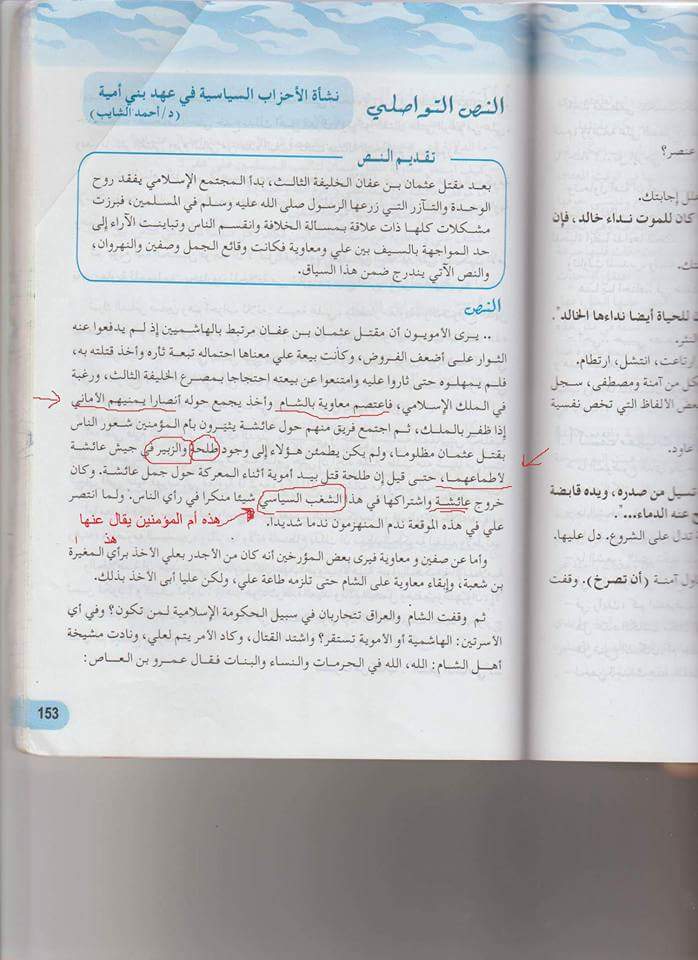 النص التواصلي
نشأة الأحزاب السياسية في عهد بني أمية
(د/أحمد الشايب)
تقديم النص
بعد مقتل عثمان بن عفان الخليفة الثالث، بدأ المجتمع الإسلامي يفقد روح
الوحدة والتآزر التي زرعها الرسول صلى الله عليه وسلم في المسلمين، فبرزت
مشكلات كلها ذات علاقة بمسالة الخلافة وانقسم الناس وتباينت الآراء إلى
حد المواجهة بالسيف بين علي ومعاوية فكانت وقائع الجمل وصفين والنهروان،
والنص الآتي يندرج ضمن هذا السياق.
النص
.. يرى الأمويون أن مقتل عثمان بن عفان مرتبط بالهاشميين إذ لم يدفعوا عنه
الثوار على أضعف الفروض، وكأنت بيعة علي معناها احتماله تبعة ثاره وأخذ قتلته به،
فلم يمهلوه حتى ثاروا عليه وامتنعوا عن بيعته احتجاجا بمصرع الخليفة الثالث، ورغبة
في الملك الإسلامي، فاعتصم معاوية بالشام وأخذ يجمع حوله أنصارا يمنيهم الأماني
إذا ظفر بالملك، ثم اجتمع فريق منهم حول عائشة يثيرون بأم المؤمنين شعور الناس
بقتل عثمان مظلوما، ولم يكن يطمئن هؤلاء إلى وجود طلحة والزبير في جيش عائشة
لأطماعهما، حتى قيل إن طلحة قتل بيد أموية أثناء المعركة حول جمل عائشة. وكان
خروج عائشة واشتراكها في هذا الشغب السياسي شيئا منكرا في رأي الناس. ولما انتصر
علي في هذه الموقعة ندم المنهزمون ندما شديدا.
هذه أم المؤمنين يقال عنها
هذ ا
وأما عن صفين و معاوية فيرى بعض المؤرخين أنه كان من الأجدر بعلي الأخذ برأي المغيرة
بن شعبة، وإبقاء معاوية على الشام حتى تلزمه طاعة علي، ولكن عليا أبى الأخذ بذلك.
ثم وقفت الشام والعراق تتحاربان في سبيل الحكومة الإسلامية لمن تكون؟ وفي أي
الأسرتين: الهاشمية أو الأموية تستقر؟ واشتد القتال، وكاد الأمر يتم لعلي، ونادت مشيخة
أهل الشام: الله، الله في الحرمات والنساء والبنات فقال عمرو بن العاص:
153
عنصر؟
إجابتك.
كان للموت نداء خالد، فإن
للحياة أيضا نداءها الخالد".
ارتاعت، انتشل، ارتطام.
من آمنة ومصطفى، سجل
بعض الألفاظ التي تخص نفسية
عاود.
تسيل من صدره، ويده قابضة
عنه الدماء..."
تدل على الشروع. دل عليها.
آمنة (أن تصرخ). وقفت